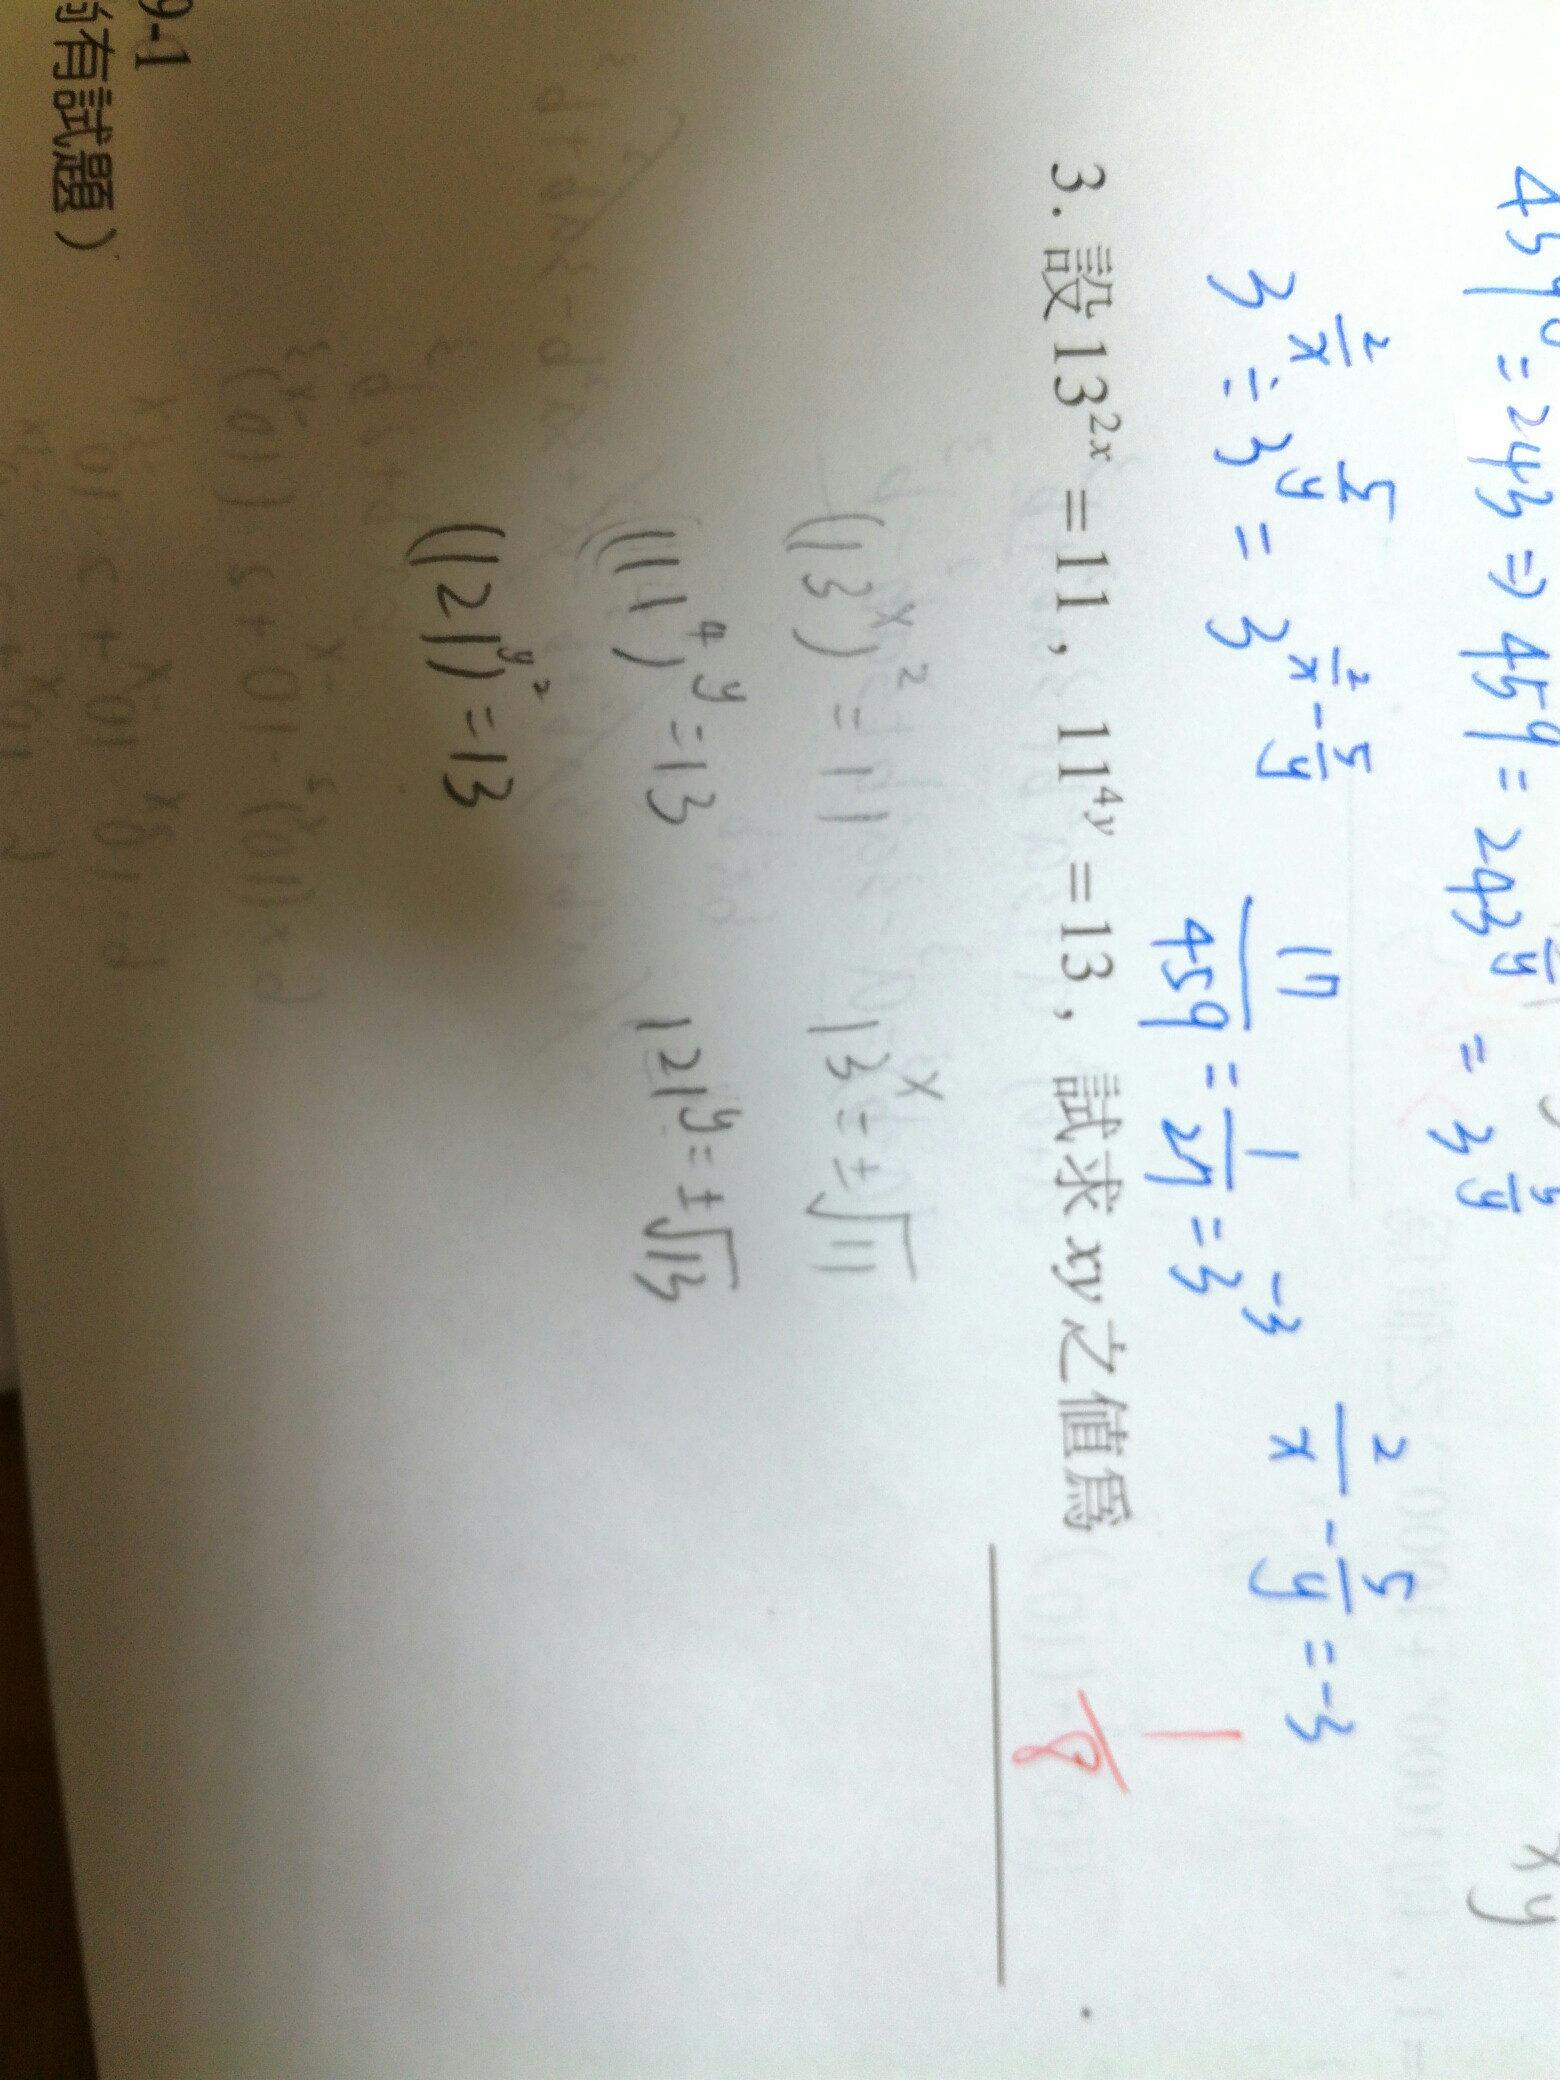 459^0 = 243 ⇒ 459 = 243^{1/y} = 3^{5/y}
3^{2/x} ÷ 3^{5/y} = 3^{2/x - 5/y}
17/459 = 1/27 = 3^{-3}
2/x - 5/y = -3
xy
3. 設 13^{2x} = 11, 11^{4y} = 13, 試求 xy 之值為
1/8
(13^x)^2 = 11
13^x = ±√11
(11^4)^y = 13
121^y = ±√13
(121^y)^2 = 13
9-1
尚有試題）